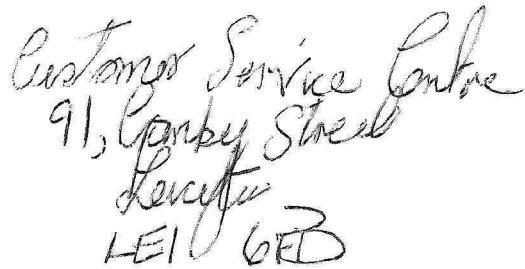 Customer Service Centre
91, Granby Street
Leicester
LE1 6FB